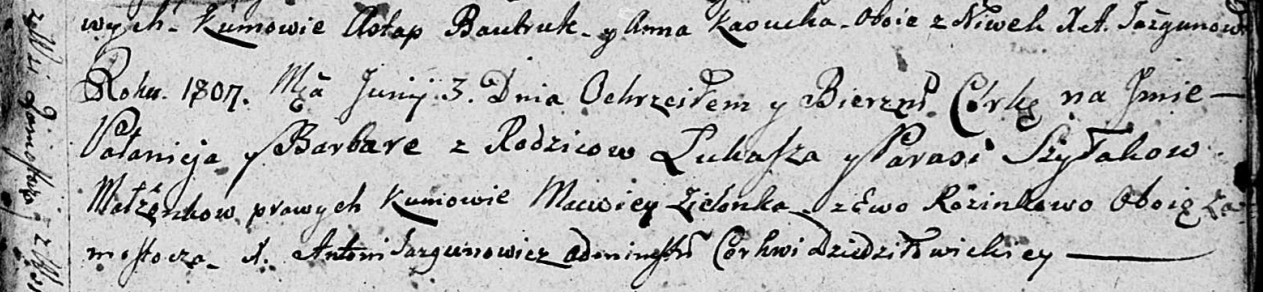 wych. Kumowie Astap Bautruk y Anna Kaoucha Oboie z Niwek X. A. Jazgunow
Roku 1807. Mca Junij 3. Dnia Ochrzciłem y Bierzm. Córkę na Jmie
Pałanieja y Barbare z Rodzicow Łukasza y Parasi Szyłakow
Małżenkow prawych Kumowie Maciey Zielonka z Ewo Rozinkowo Oboie Za
mostocza. X. Antoni Jazgunowicz Administr Cerkwi Dziedziłowickiey